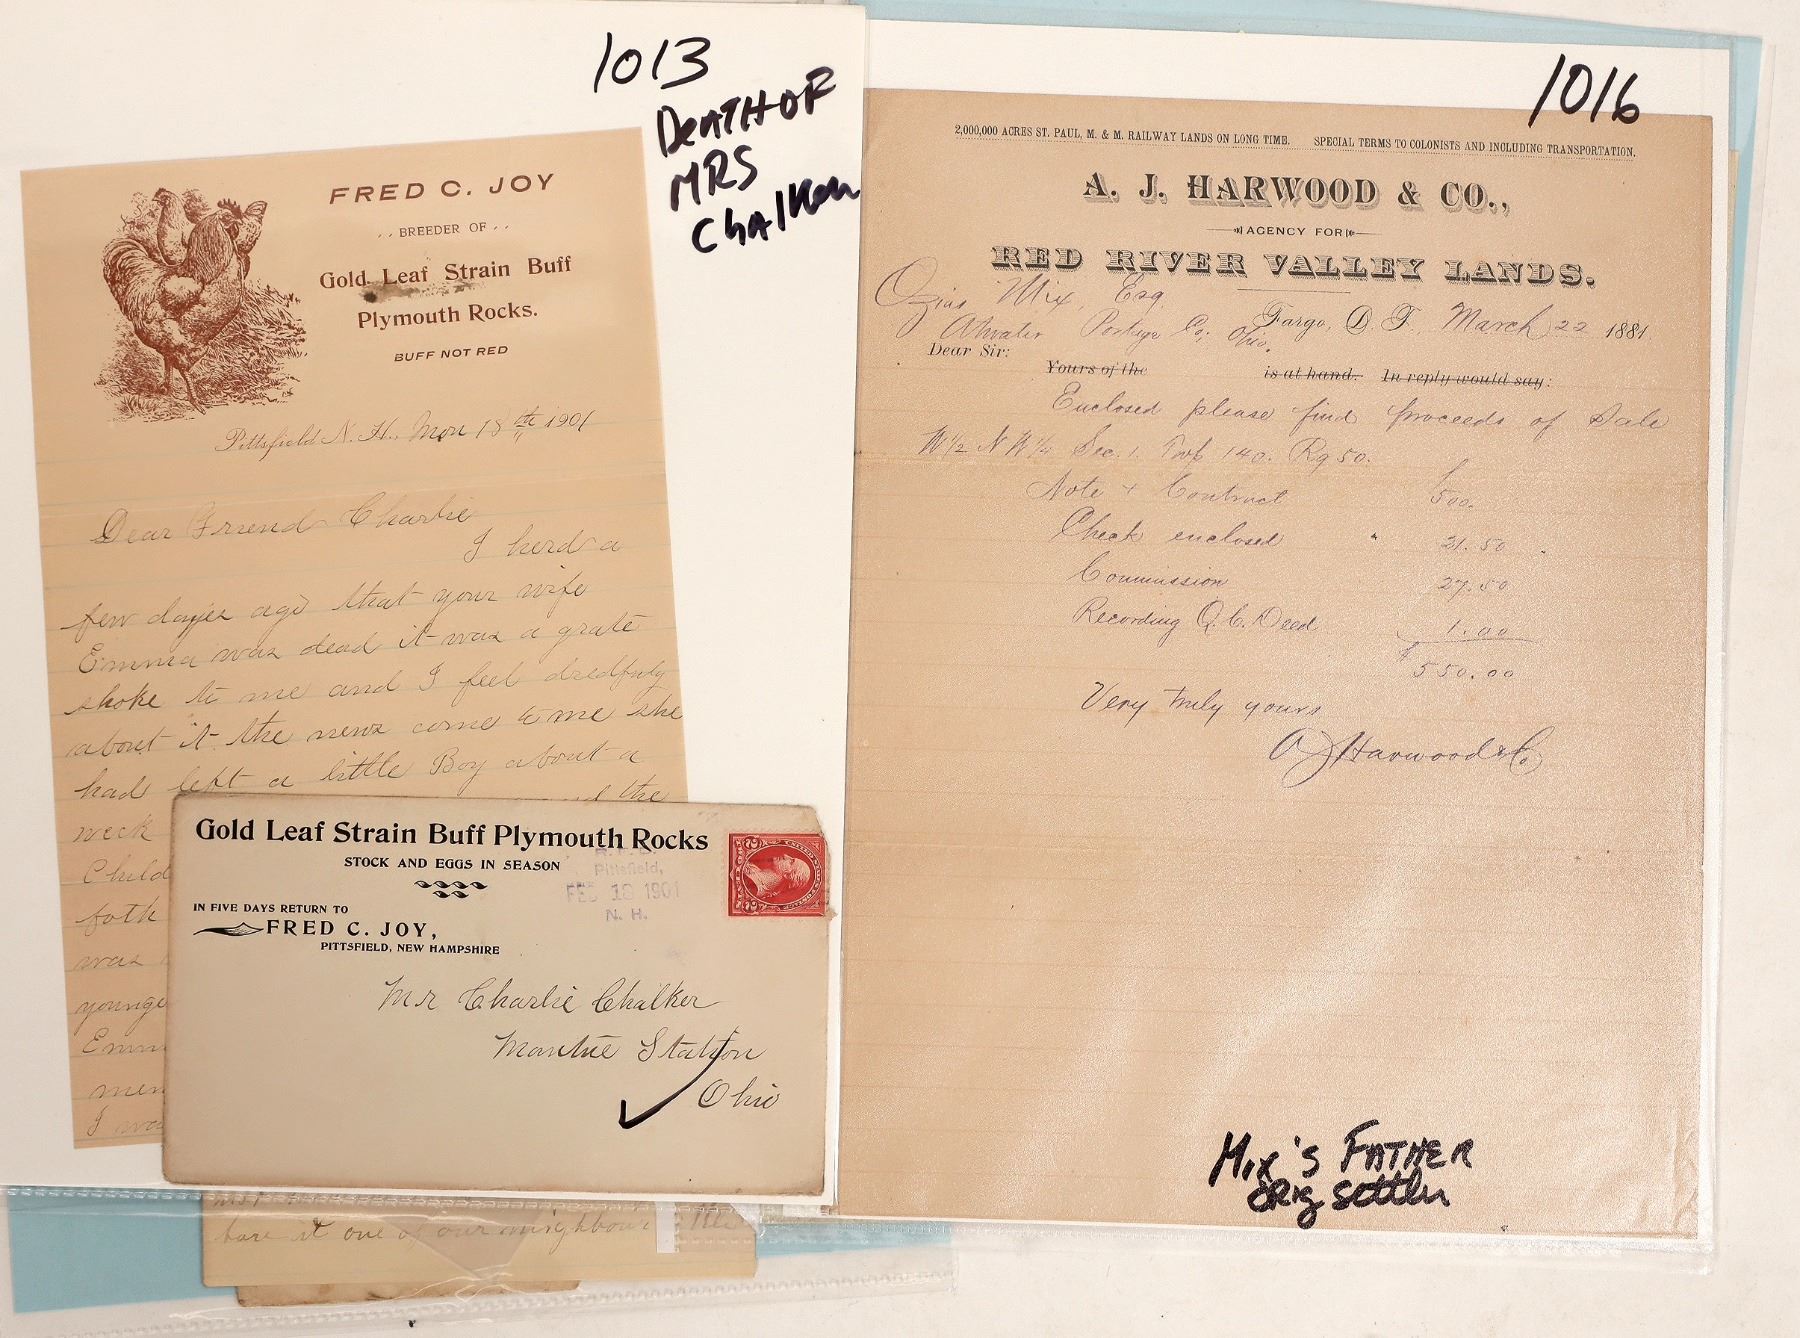 1013
DEATH OF
MRS
Chalker
FRED C. JOY
. . BREEDER OF . .
Gold Leaf Strain Buff
Plymouth Rocks.
BUFF NOT RED
Pittsfield N. H., Mon 18th 1901
Dear Friend Charlie
I herd a
few dayes ago that your wife
Emma was dead it was a grate
shoke to me and I feel dredfuly
about it the news come to me she
had left a little Boy about a
week
the
Child
foth
was
younge
Emm
men
I wa
Gold Leaf Strain Buff Plymouth Rocks
STOCK AND EGGS IN SEASON
Pittsfield,
FEB 18 1901
N. H.
IN FIVE DAYS RETURN TO
FRED C. JOY,
PITTSFIELD, NEW HAMPSHIRE
Mr Charlie Chalker
Mantue Station
Ohio
hare it one of our neighbours
1016
2,000,000 ACRES ST. PAUL, M. & M. RAILWAY LANDS ON LONG TIME. SPECIAL TERMS TO COLONISTS AND INCLUDING TRANSPORTATION.
A. J. HARWOOD & CO.,
AGENCY FOR
RED RIVER VALLEY LANDS.
Ozias Mix, Esq
Fargo, D. T., March 22 1881
Atwater Portage Co; Ohio.
Dear Sir:
Yours of the is at hand. In reply would say:
Enclosed please find proceeds of Sale
W 1/2 N W 1/4 Sec. 1. Twp 140. Rg 50.
Note + Contract $ 500.
Check enclosed " 21.50
Commission 27.50
Recording Q. C. Deed 1.00
$ 550.00
Very truly yours
A J Harwood & Co
Mix's FATHER
ORig settler